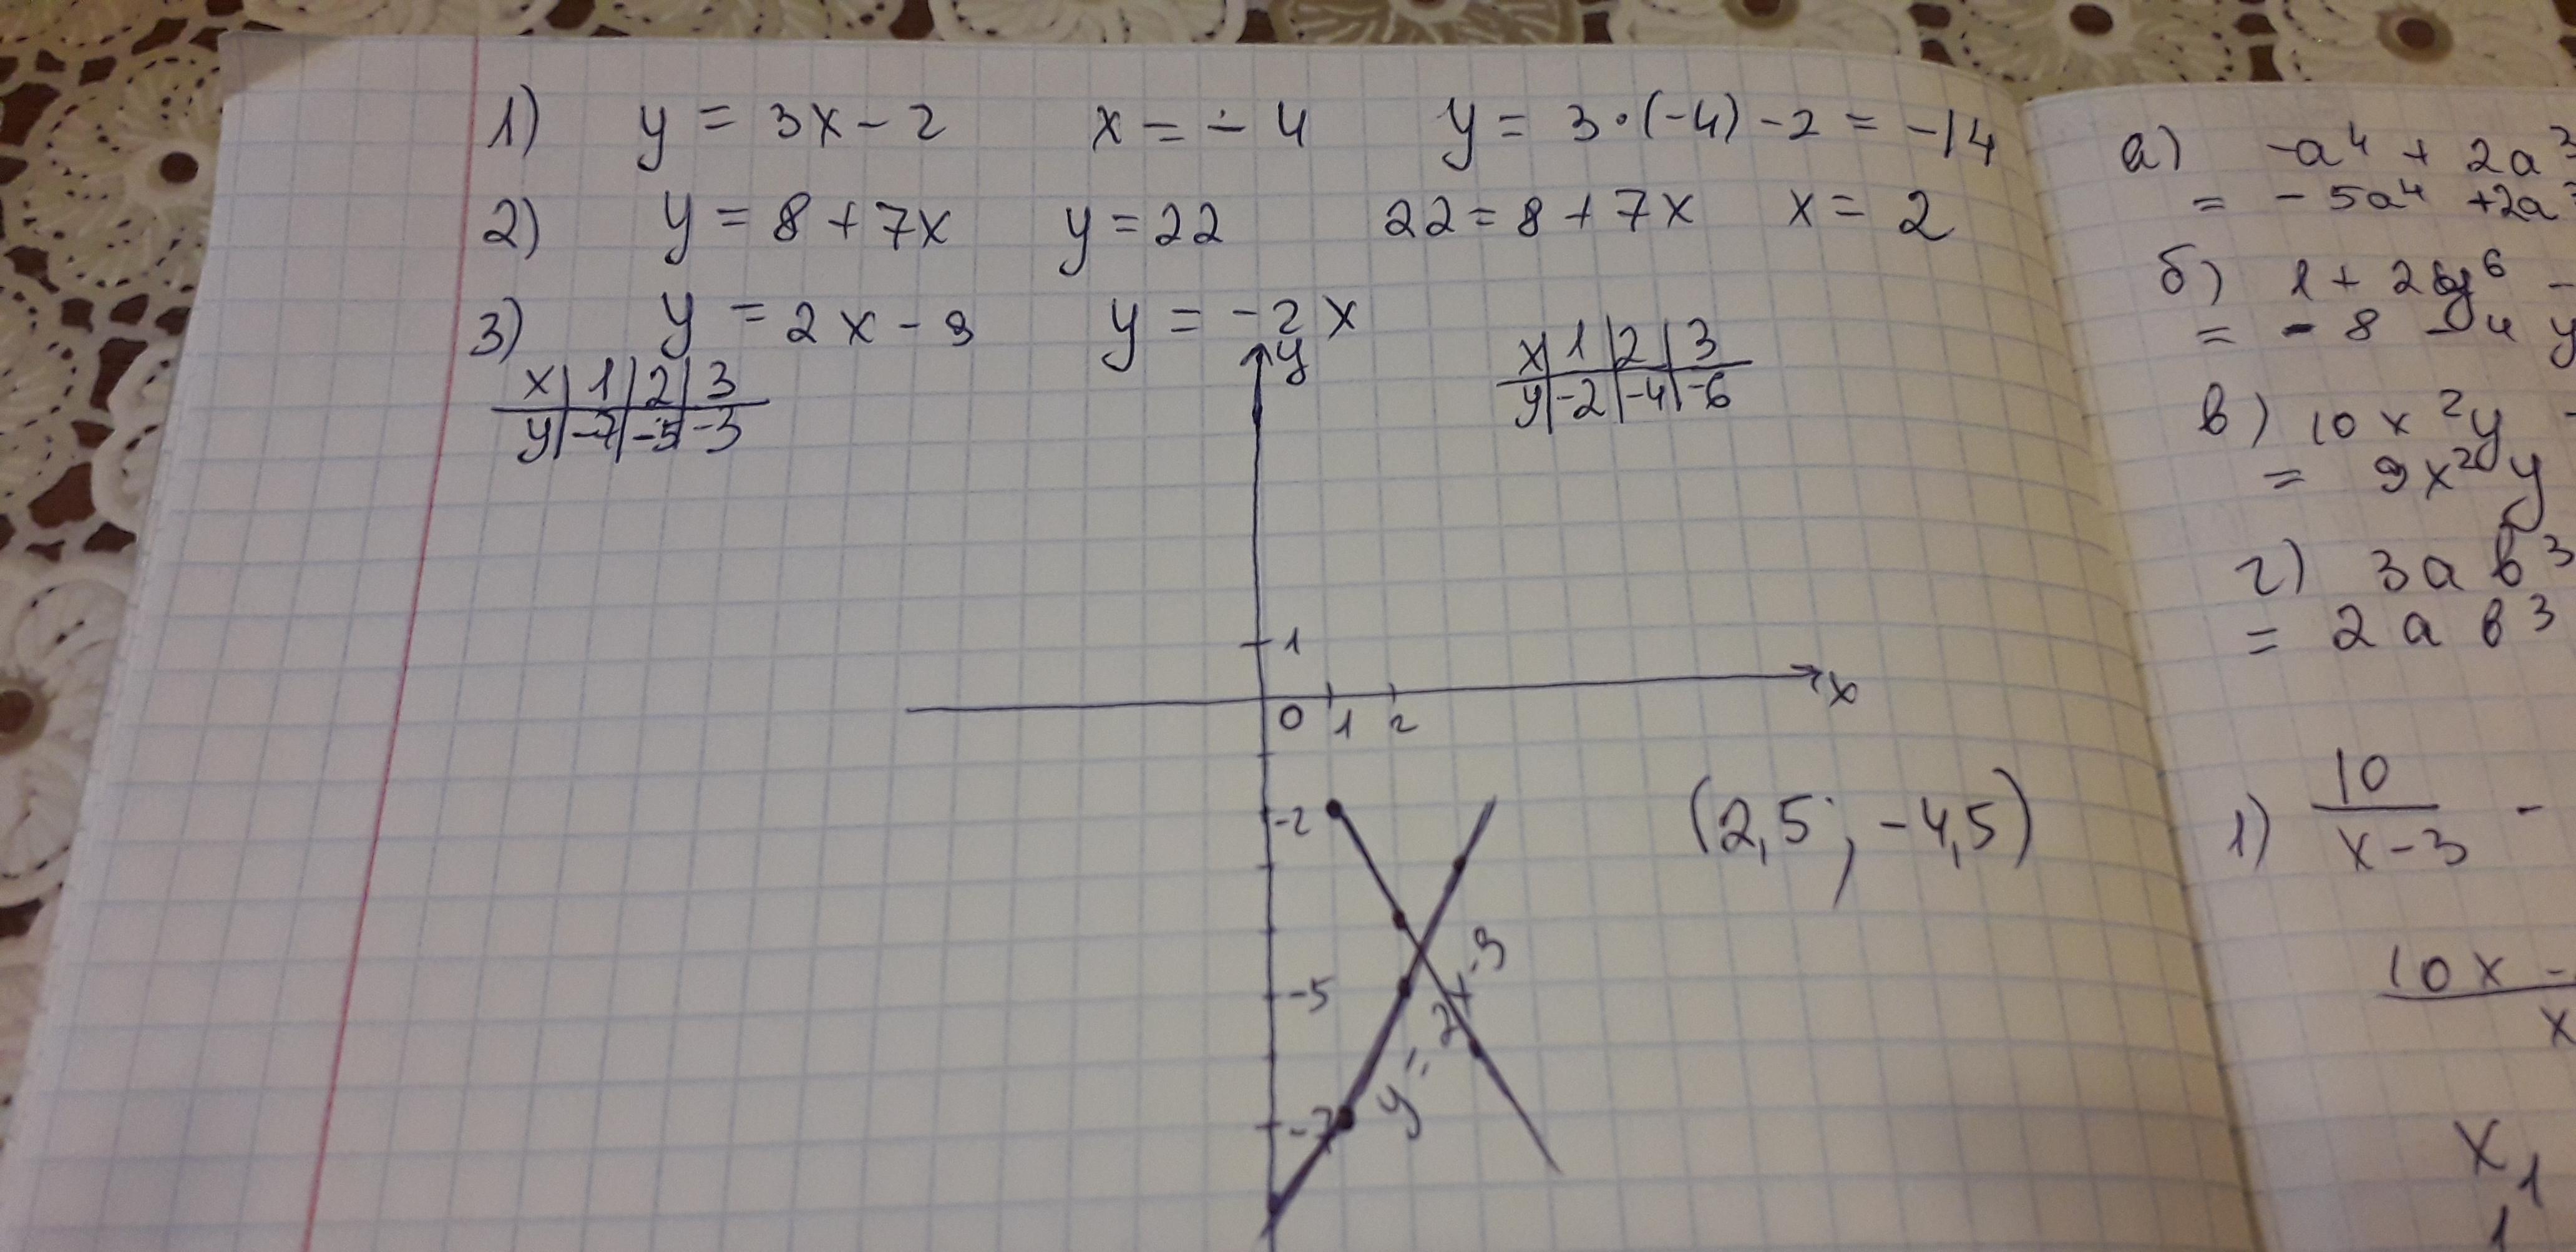 1) y = 3x - 2 x = - 4 y = 3·(-4) - 2 = -14
2) y = 8 + 7x y = 22 22 = 8 + 7x x = 2
3) y = 2x - 9 y = -2x
x | 1 | 2 | 3
y | -7 | -5 | -3
x | 1 | 2 | 3
y | -2 | -4 | -6
y
1
x
0 1 2
-2
(2,5 ; -4,5)
-5
y = 2x - 9
-7
а) -a⁴ + 2a³
= - 5a⁴ + 2a³
б)
= - 8 - 4 y
в) 10x²y
= 9x²y
г) 3ab³
= 2ab³
1) 10 -
x - 3
10x -
x
x₁
1